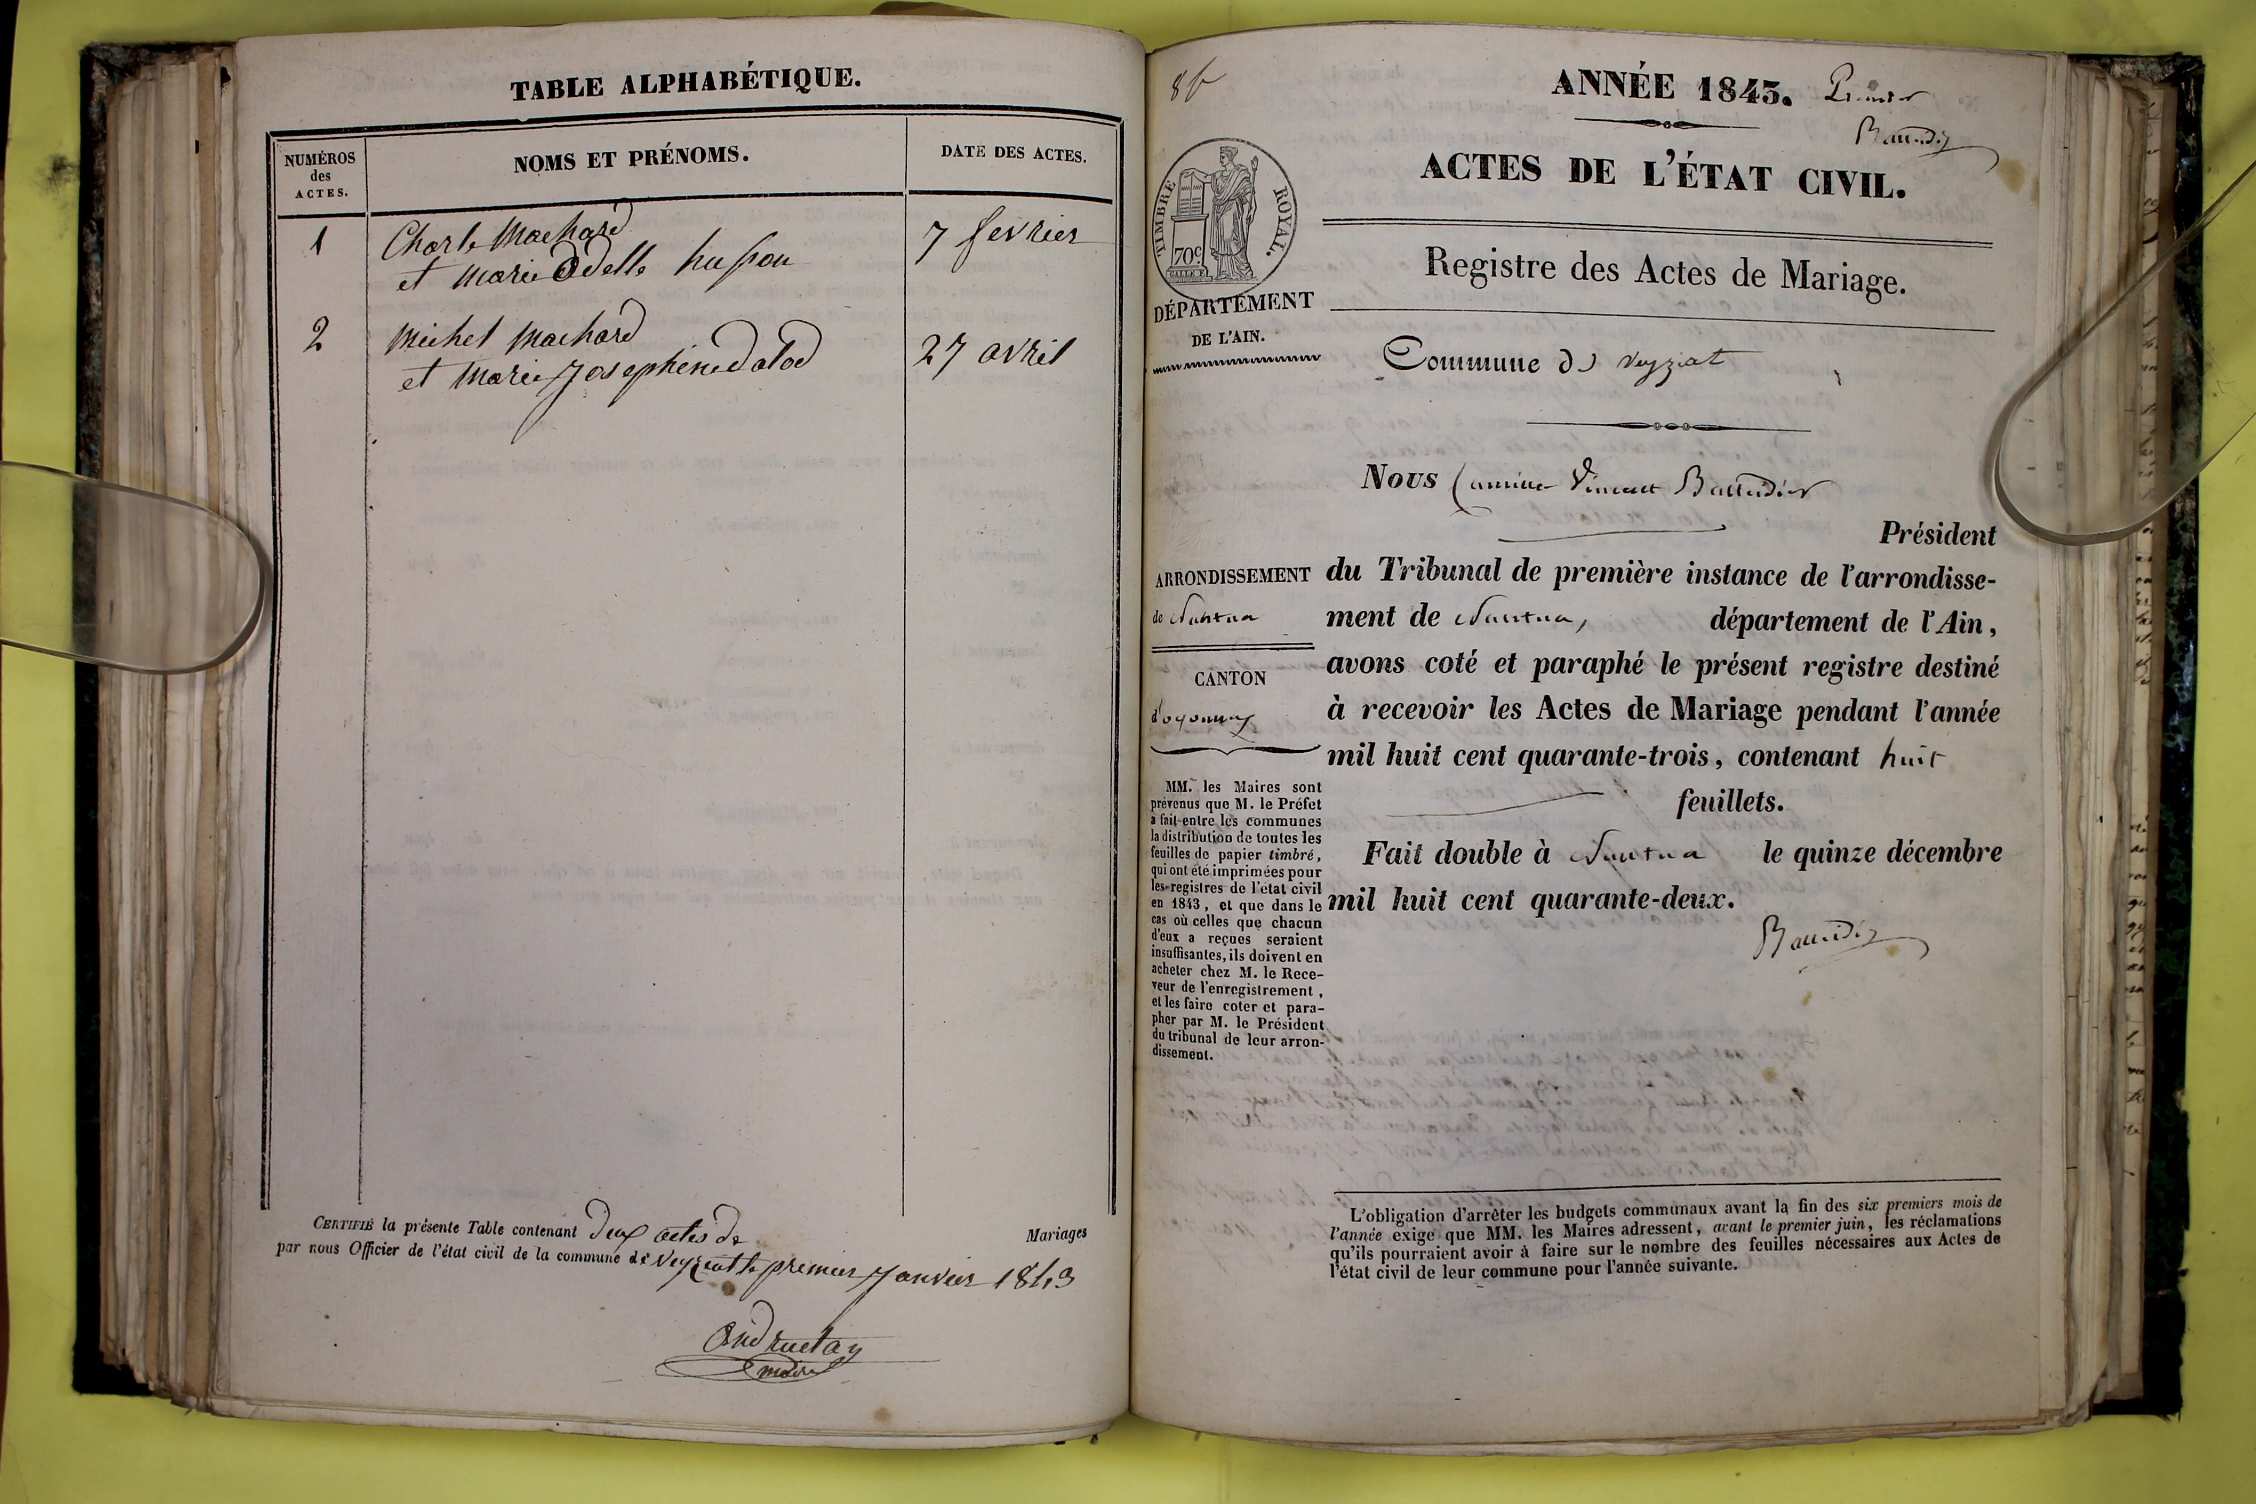 TABLE ALPHABÉTIQUE.
NUMÉROS
des
ACTES.
NOMS ET PRÉNOMS.
DATE DES ACTES.
1
Charle Machard
7 fevrier
et marie Odelle husson
2
Michel Machard
27 avril
et Marie Josephine dalod
CERTIFIÉ la présente Table contenant deux actes de Mariages
par nous Officier de l'état civil de la commune de Veyziat le premier Janvier 1843
Andruetan
maire
86
ANNÉE 1843. Premier
Baudier
ACTES DE L'ÉTAT CIVIL.
TIMBRE ROYAL.
70c
Registre des Actes de Mariage.
DÉPARTEMENT
DE L'AIN.
Commune de Veyziat
Nous Camille Vincent Baudier
Président
du Tribunal de première instance de l'arrondisse-
ment de Nantua, département de l'Ain,
avons coté et paraphé le présent registre destiné
à recevoir les Actes de Mariage pendant l'année
mil huit cent quarante-trois, contenant huit
feuillets.
Fait double à Nantua le quinze décembre
mil huit cent quarante-deux.
Baudier
ARRONDISSEMENT
de Nantua
CANTON
d'oyonnax
MM. les Maires sont
prévenus que M. le Préfet
a fait entre les communes
la distribution de toutes les
feuilles de papier timbré,
qui ont été imprimées pour
les registres de l'état civil
en 1843, et que dans le
cas où celles que chacun
d'eux a reçues seraient
insuffisantes, ils doivent en
acheter chez M. le Rece-
veur de l'enregistrement,
et les faire coter et para-
pher par M. le Président
du tribunal de leur arron-
dissement.
L'obligation d'arrêter les budgets communaux avant la fin des six premiers mois de
l'année exige que MM. les Maires adressent, avant le premier juin, les réclamations
qu'ils pourraient avoir à faire sur le nombre des feuilles nécessaires aux Actes de
l'état civil de leur commune pour l'année suivante.